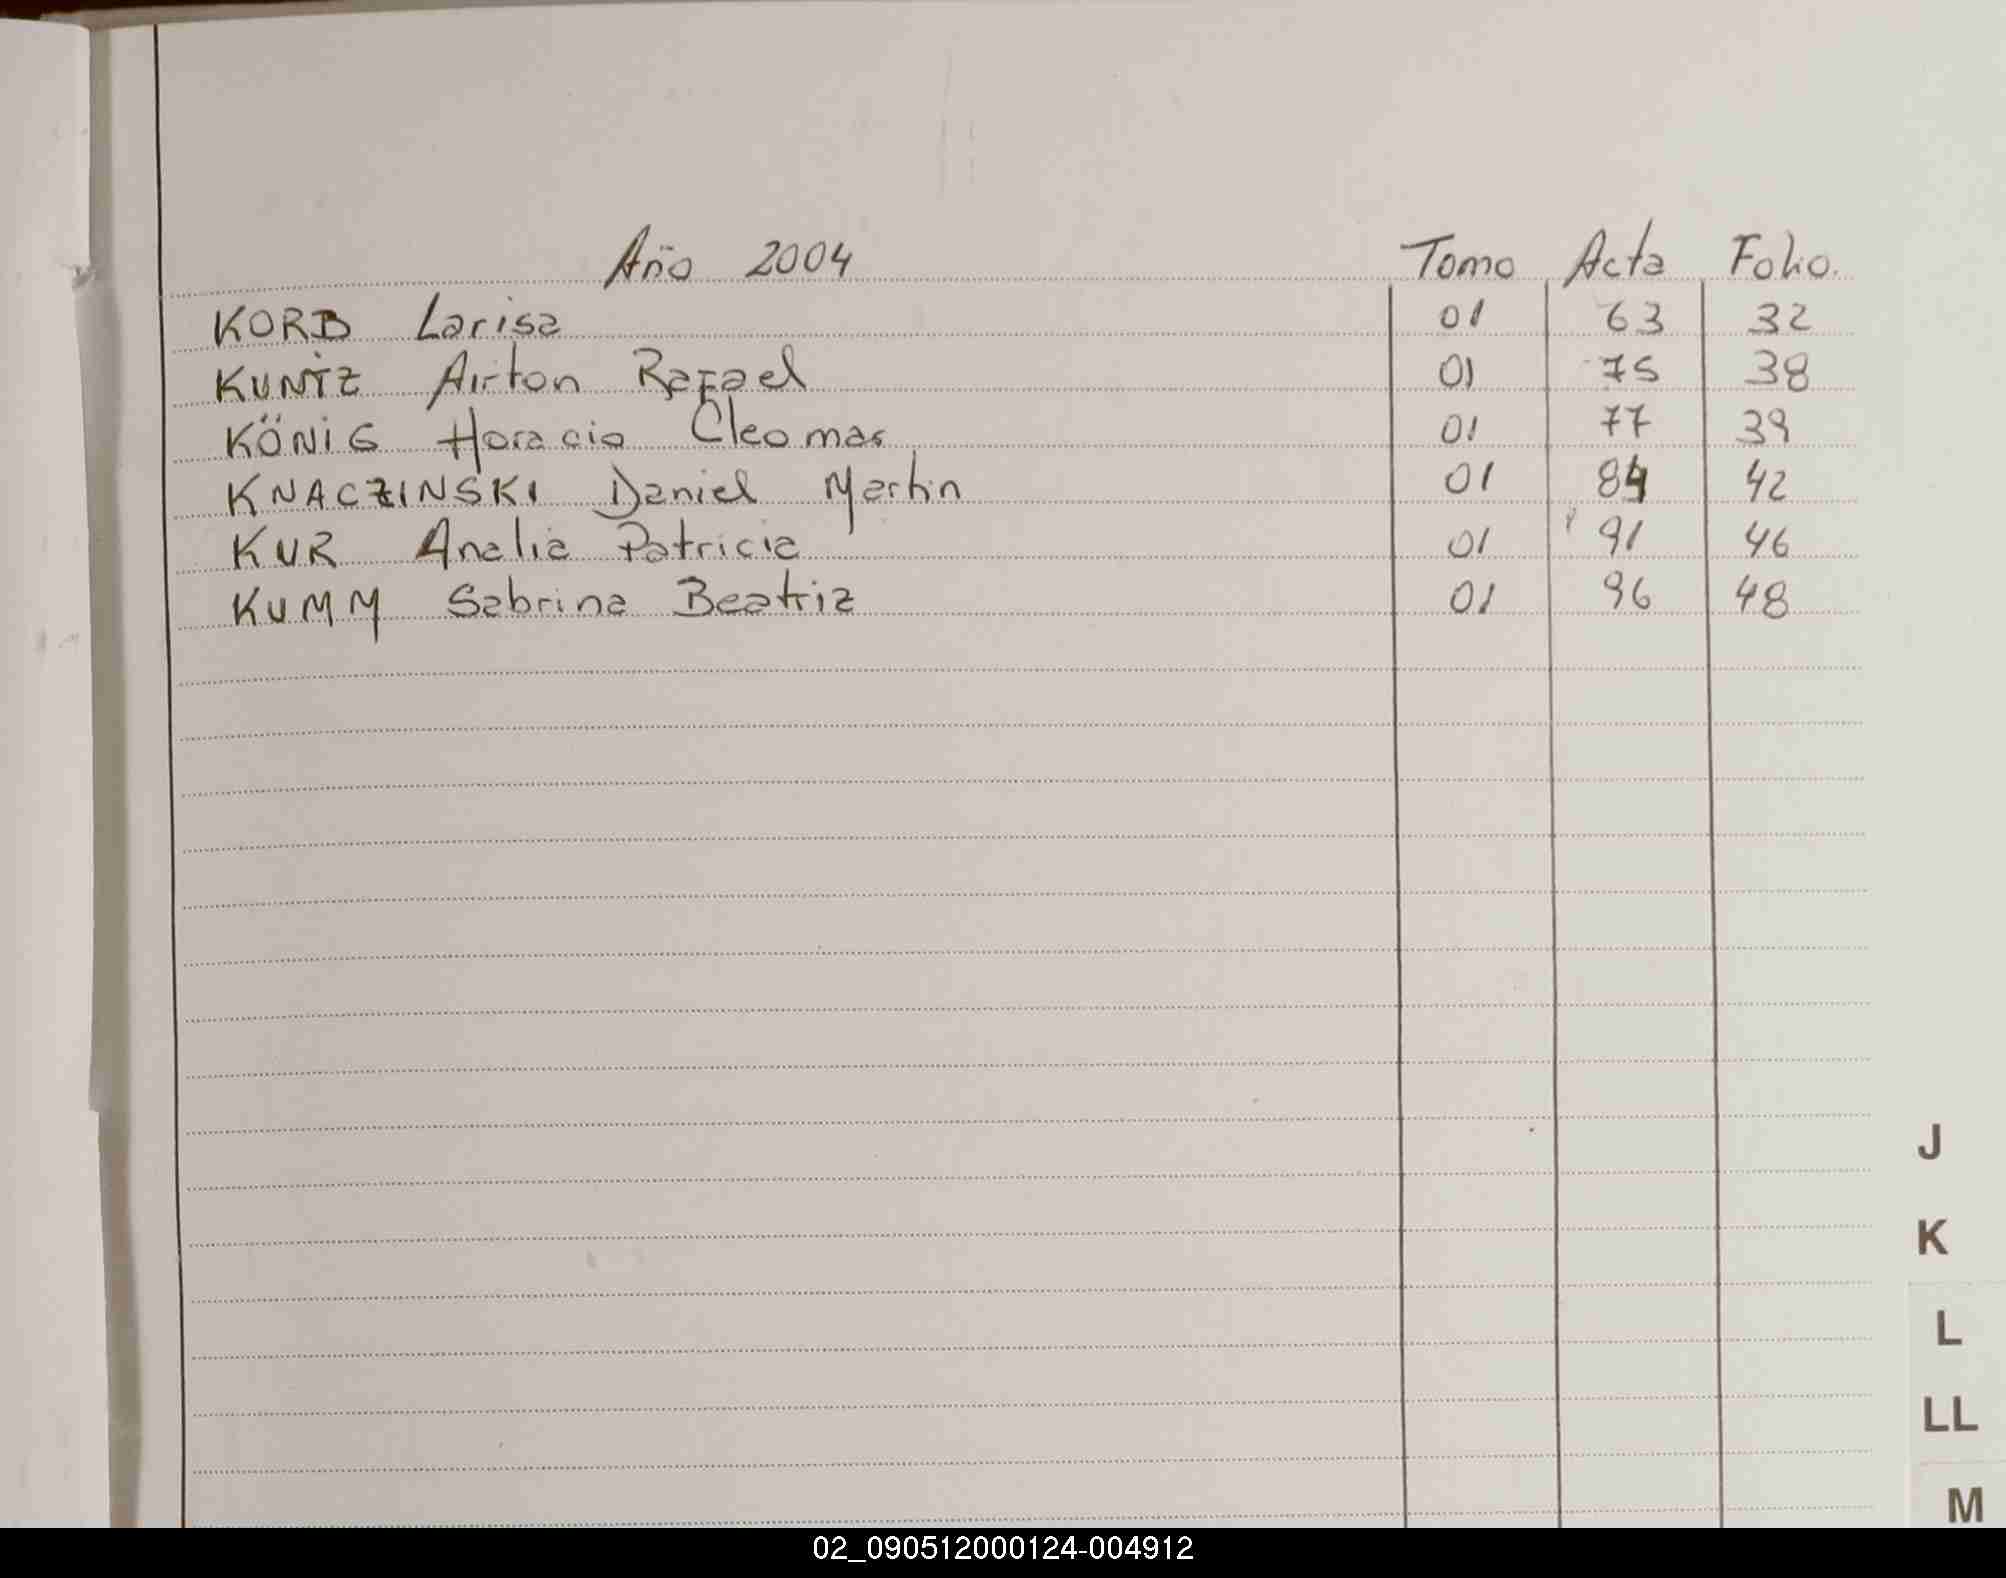 Año 2004 Tomo Acta Folio.
KORB Larisa 01 63 32
KUNTZ Airton Rafael 01 75 38
KÖNIG Horacio Cleomar 01 77 39
KNACZINSKI Daniel Martin 01 84 42
KUR Analia Patricia 01 91 46
KUMM Sabrina Beatriz 01 96 48
J
K
L
LL
M
02_090512000124-004912